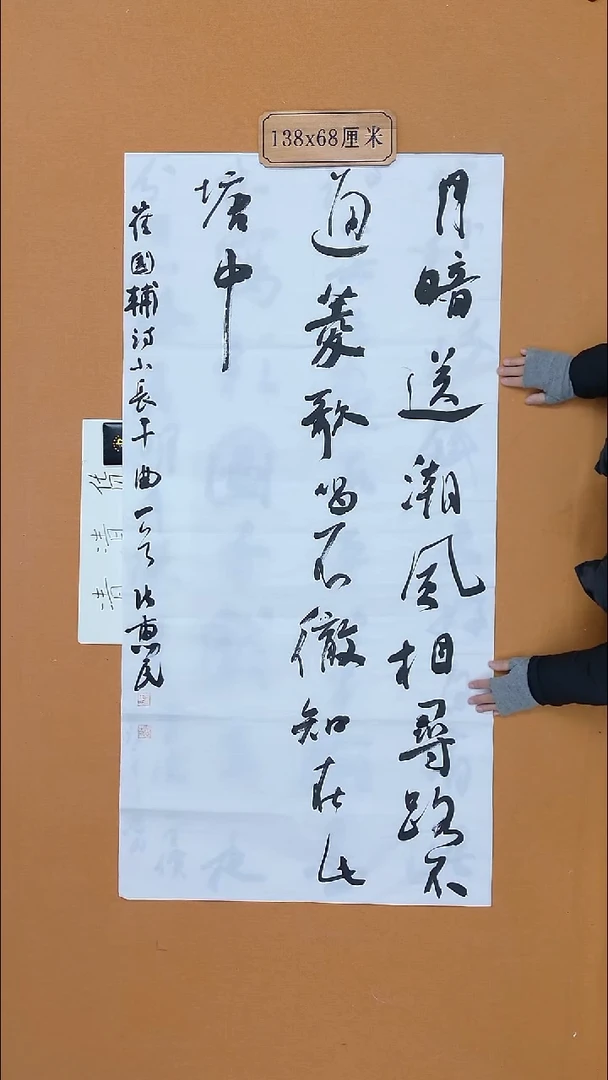 138x68厘米
月暗送潮風相尋路不
通菱歌唱不徹知在此
塘中
崔國輔诗小長干曲一首 惠民